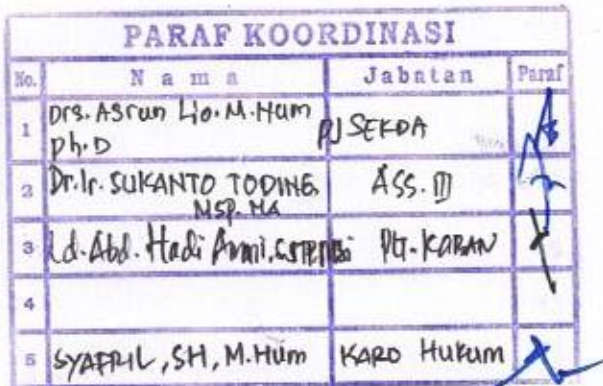 PARAF KOORDINASI
No. Nama Jabatan Paraf
1 Drs. Asrun Lio. M. Hum Ph.D PJ SEKDA
2 Dr. Ir. SUKANTO TODING. MSP. MA ASS. III
3 Ld. Abd. Hadi Plt. KABAN
4
5 SYAFRIL, SH, M.Hum KARO HUKUM